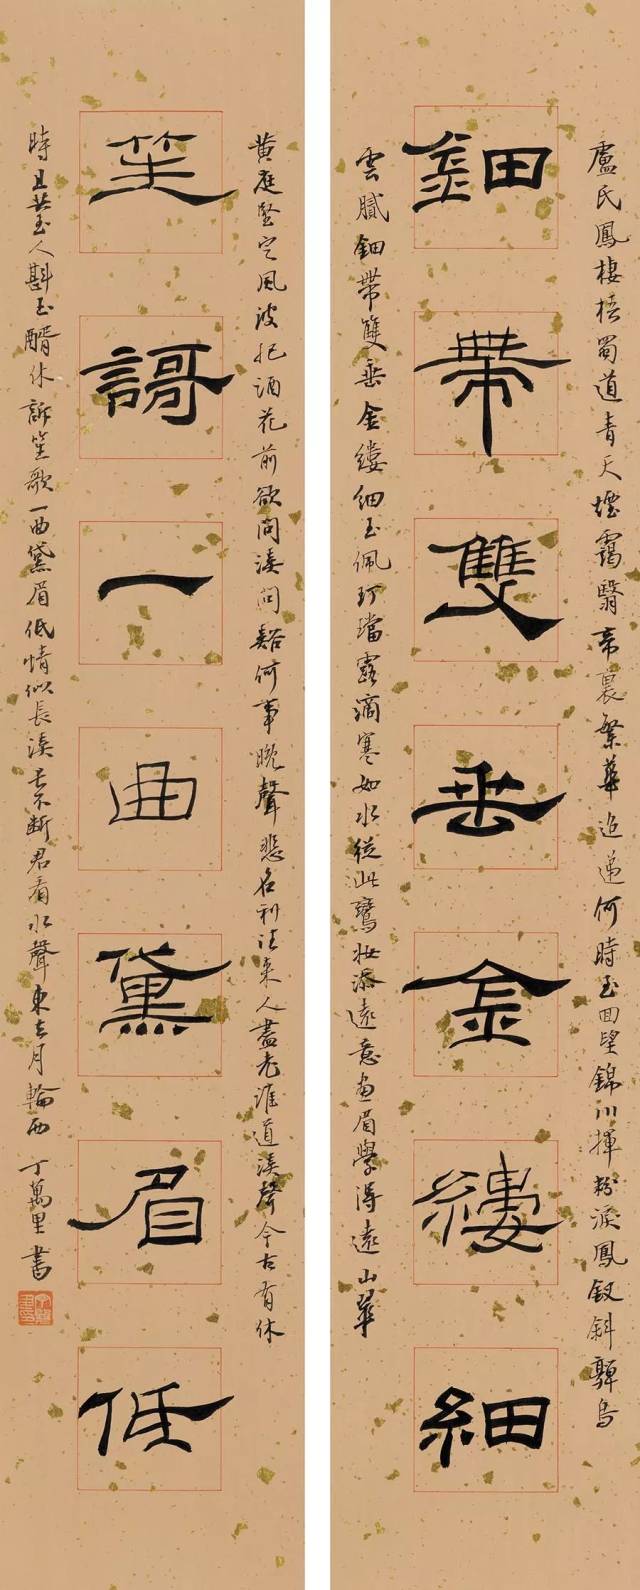 盧氏鳳棲梧蜀道青天煙靄翳帝裏繁華迢递何時至回望錦川揮粉淚鳳釵斜嚲烏
鈿帶雙垂金縷細
雲膩鈿帶雙垂金縷細玉佩玎璫露滴寒如水從此鸞妝添遠意畫眉學得遠山翠
黃庭堅定風波把酒花前欲問溪問谿何事晚聲悲名利往來人盡老誰道溪聲今古有休
笙謌一曲黛眉低
時且共玉人斟玉醑休訴笙歌一曲黛眉低情似長溪長不斷君看水聲東去月輪西 丁萬里書